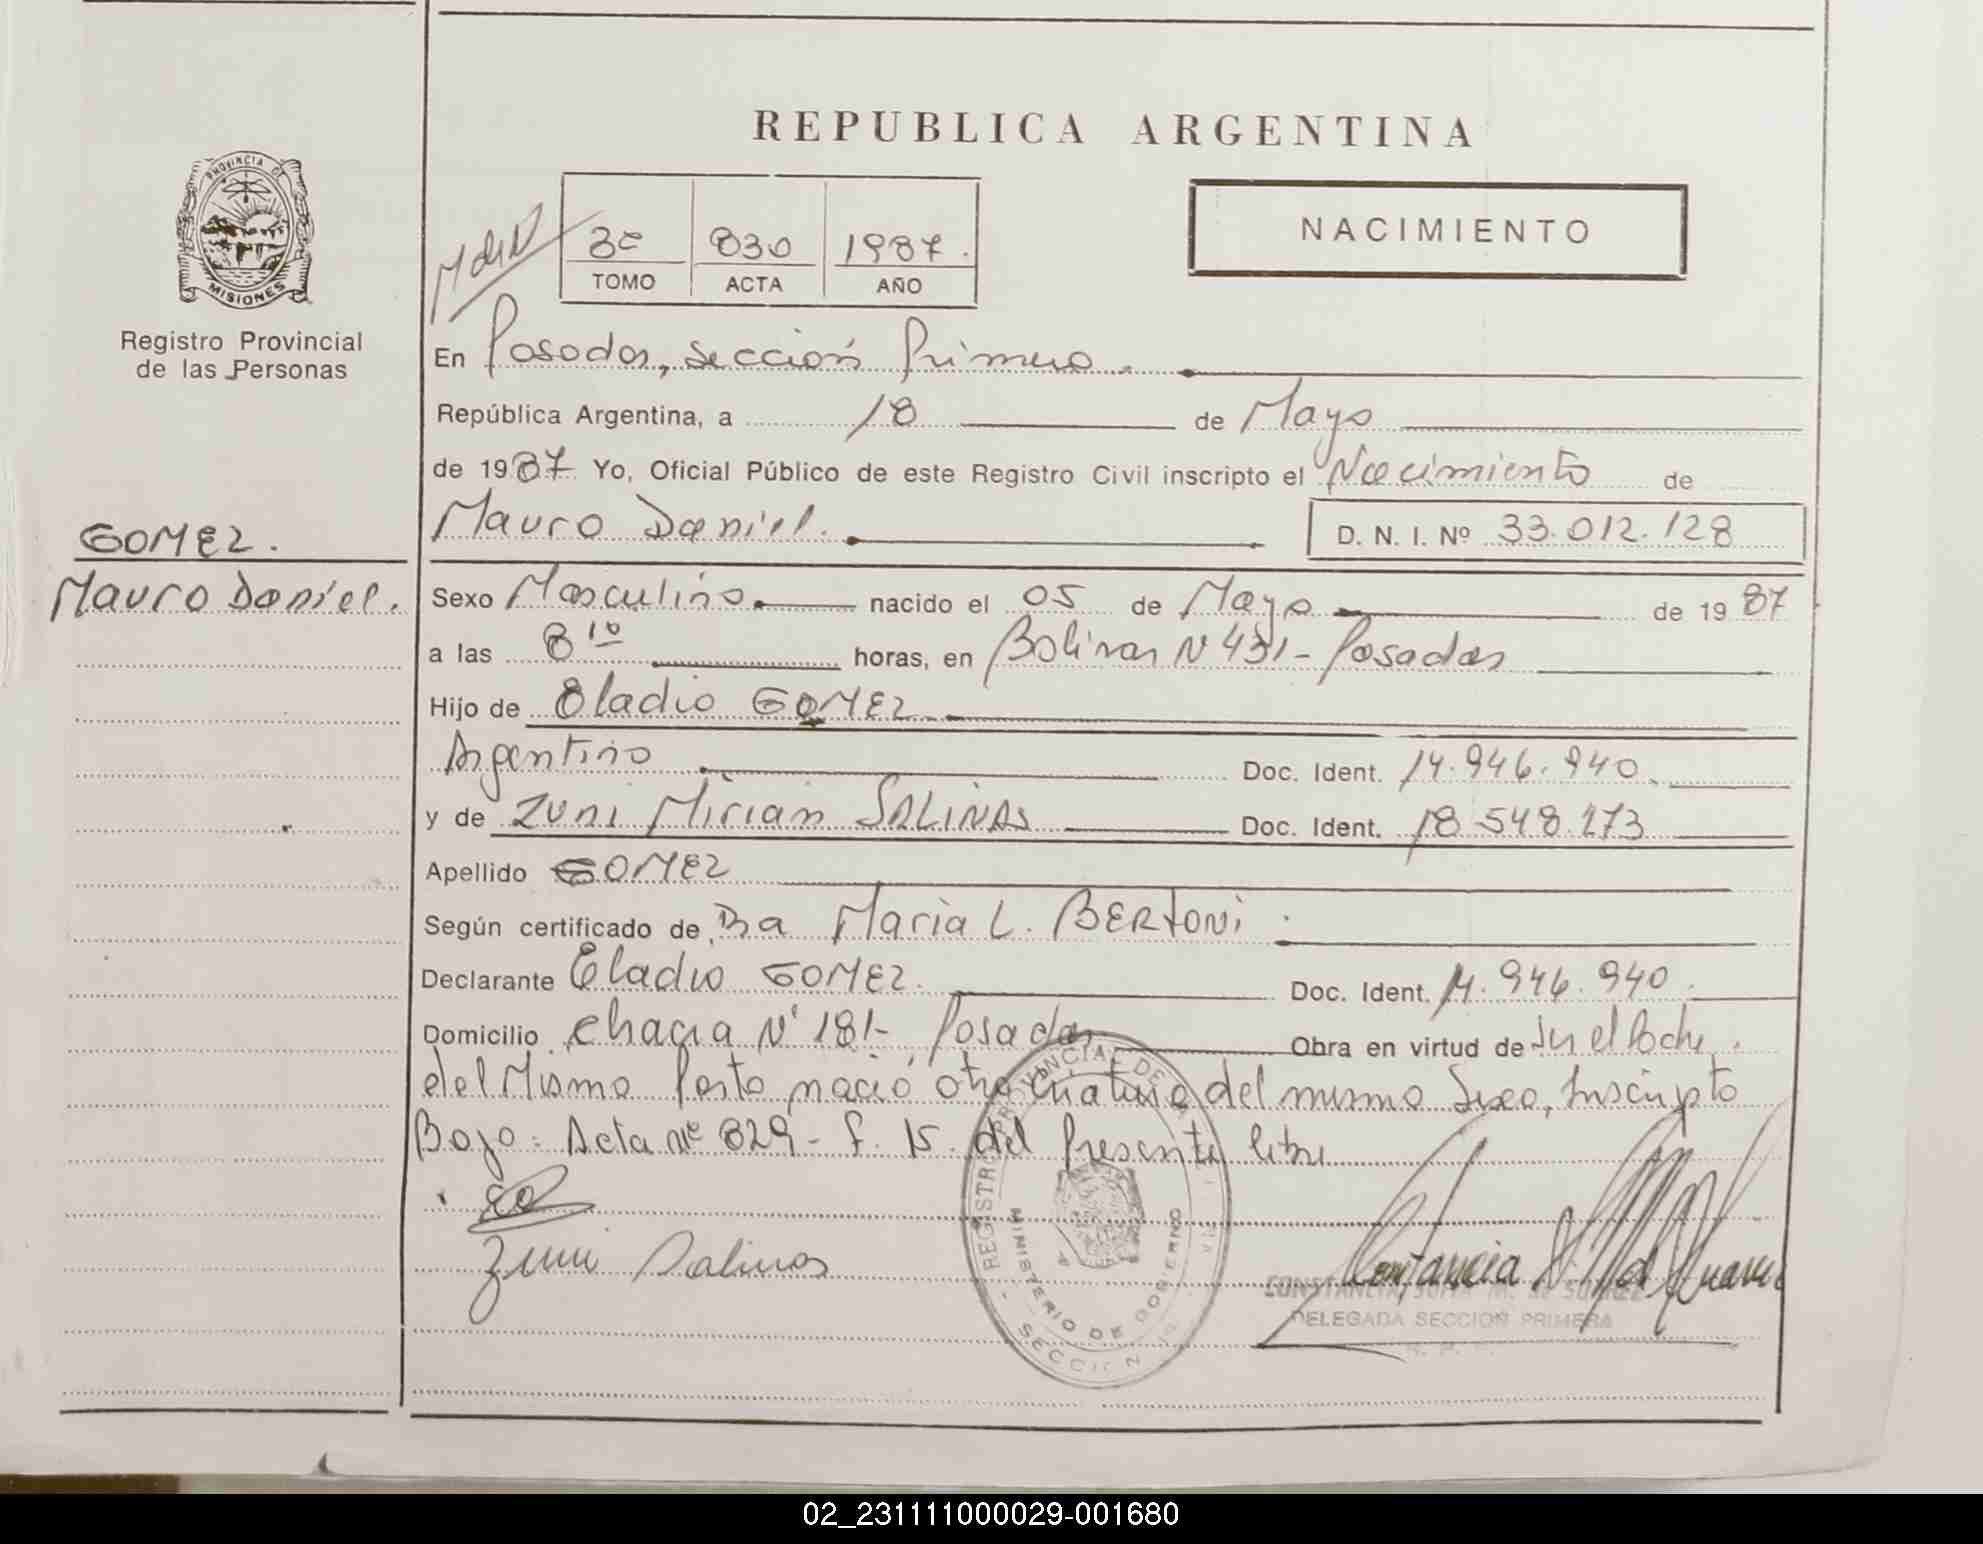 REPUBLICA ARGENTINA
PROVINCIA DE
MISIONES
Registro Provincial
de las Personas
3º 830 1987.
TOMO ACTA AÑO
NACIMIENTO
En Posadas, sección Primera.
República Argentina, a 18 de Mayo
de 1987 Yo, Oficial Público de este Registro Civil inscripto el Nacimiento de
Mauro Daniel. D. N. I. Nº 33.012.128
GOMEZ.
Mauro Daniel.
Sexo Masculino. nacido el 05 de Mayo de 1987
a las 8 10 horas, en Bolivar Nº 431 - Posadas
Hijo de Eladio GOMEZ
Argentino Doc. Ident. 14.946.940.
y de Zuni Mirian SALINAS Doc. Ident. 18.548.273
Apellido GOMEZ
Según certificado de Dra Maria L. BERTONI.
Declarante Eladio GOMEZ. Doc. Ident. 14.946.940.
Domicilio Chacra Nº 181 - Posadas Obra en virtud de
del Mismo Parto nació otra criatura del mismo Sexo, Inscripto
Bajo: Acta nº 829 - F. 15. del Presente libro
Zuni Salinas
REGISTRO PROVINCIAL DE LAS
MINISTERIO DE GOBIERNO
SECCION
DELEGADA SECCION PRIMERA
02_231111000029-001680